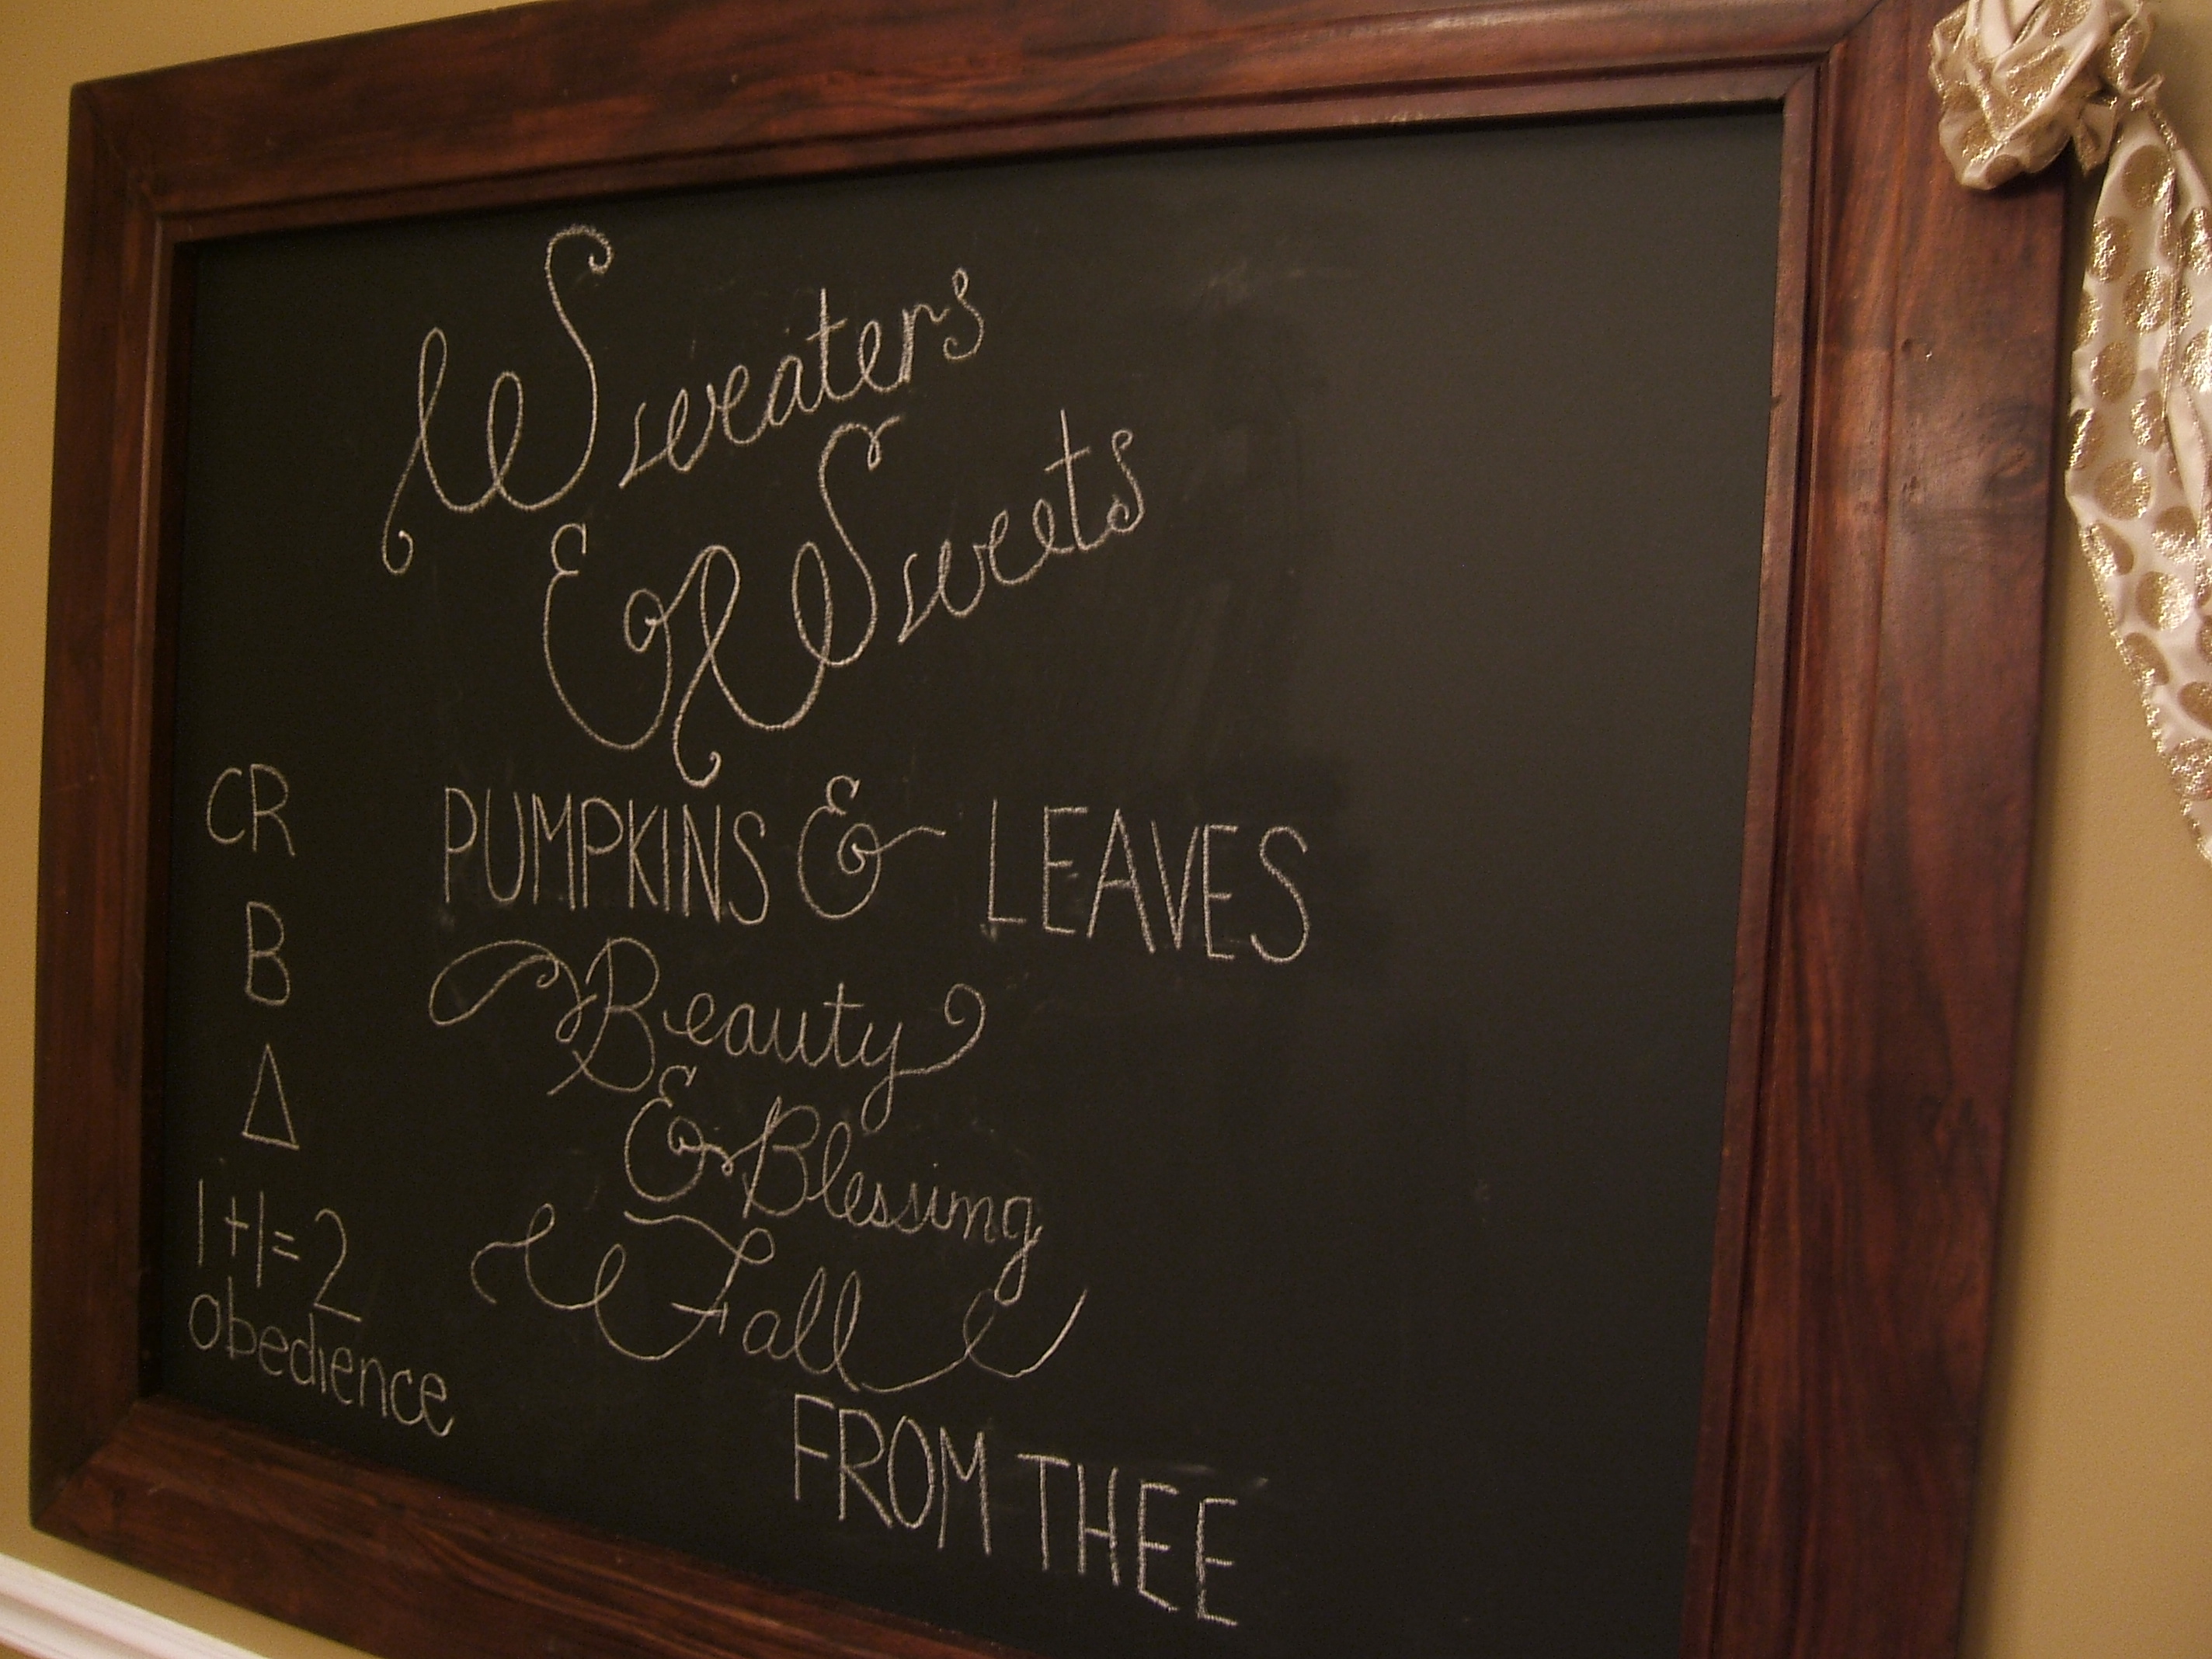 Sweaters
& Sweets
PUMPKINS & LEAVES
Beauty
& Blessing
Fall
FROM THEE
CR
B
Δ
1+1=2
obedience